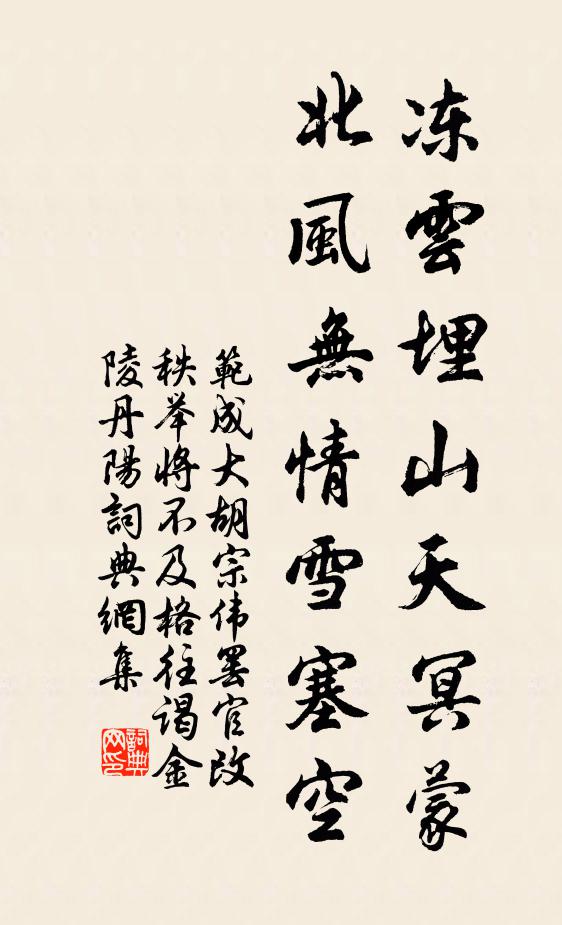 冻雲埋山天冥蒙
北風無情雪塞空
範成大胡宗伟罢官改
秩举將不及格往谒金
陵丹陽詞典網集
詞典网印